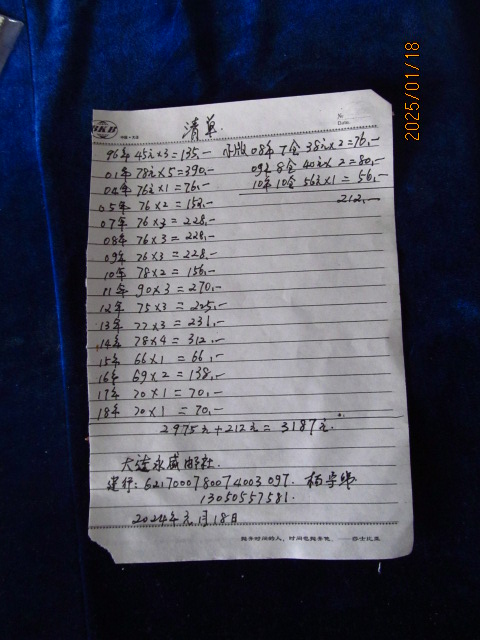 2025/01/18
BKB
№
Date.
清单.
96年 45元×3=135.—
01年 78元×5=390.—
04年 76元×1=76.—
05年 76×2=152.—
07年 76×3=228.—
08年 76×3=228.—
09年 76×3=228.—
10年 78×2=156.—
11年 90×3=270.—
12年 75×3=225.—
13年 77×3=231.—
14年 78×4=312.—
15年 66×1=66.—
16年 69×2=138.—
17年 70×1=70.—
18年 70×1=70.—
小版08年7全38元×2=76.—
09年8全40元×2=80.—
10年10全56元×1=56.—
212.—
2975元+212元=3187元.
大连永盛邮社.
建行: 6217000780074003097. 杨
13050557581.
2024年元月18日